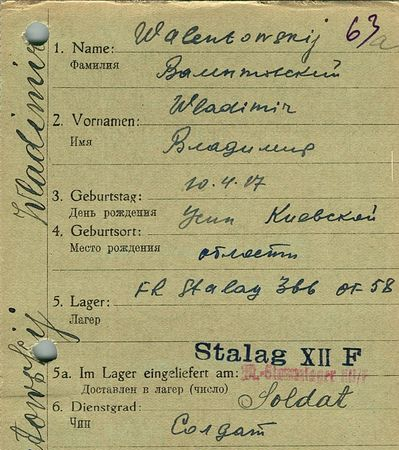 Walentowskij 63a
1. Name:
Фамилия
Валентовский
Wladimir
2. Vornamen:
Имя
Владимир
10.4.17
3. Geburtstag:
День рождения
4. Geburtsort:
Киевской
Место рождения
области
FR Stalag 366 OF 58
5. Lager:
Лагер
Stalag XII F
5a. Im Lager eingeliefert am:
Доставлен в лагер (число)
Soldat
6. Dienstgrad:
Чин
Солдат
Wladimir